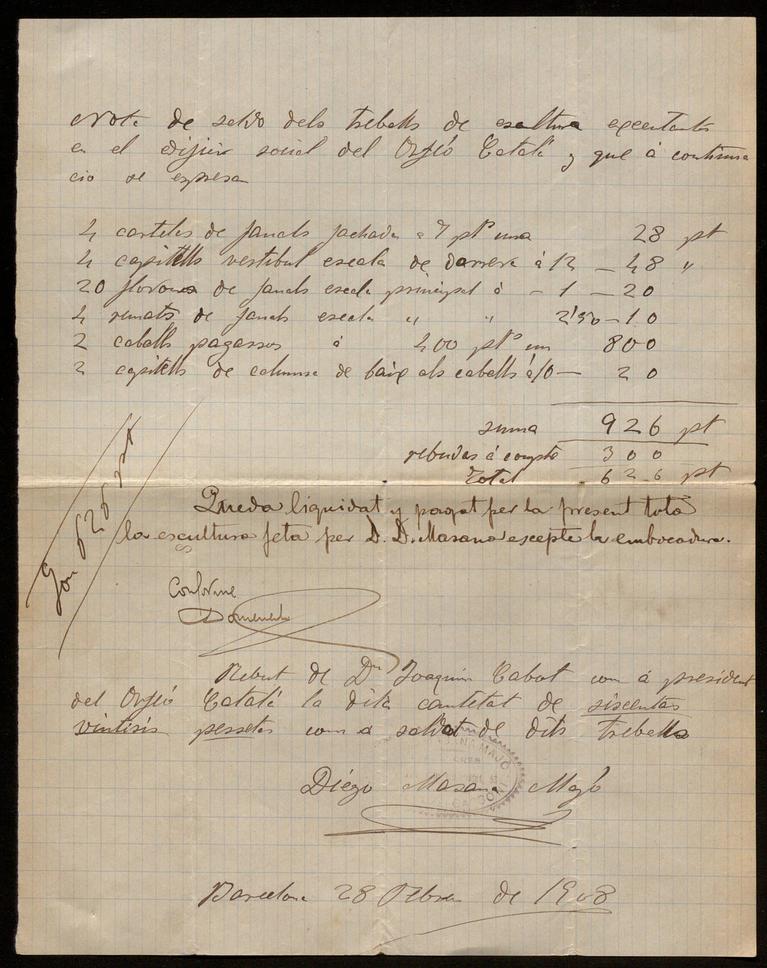 Nota de saldo dels treballs de escultura executants
en el edifici social del Orfeó Català y que à continua
cio se expresa
4 carteles de fanals fachada à 7 pts una 28 pt
4 capitells vestibul escala de darrera à 12 — 48 "
20 florons de fanals escala principal à — 1 — 20
4 remats de fanals escala " " 2'50 — 10
2 caballs pagassos à 400 pts un 800
2 capitells de columna de baix als caballs à 10 — 20
suma 926 pt
rebudas á compte 300
Total 626 pt
Son 626 pt
Queda liquidat y pagat per la present tota
la escultura feta per D. D. Masana excepte la embocadura.
Conforme
Domenech
Rebut de Dn Joaquim Cabot com á president
del Orfeó Català la dita cantitat de siscentas
vintisis pessetas com a saldo de dits treballs
Diégo Masana Majó
Barcelona 28 Febrer de 1908